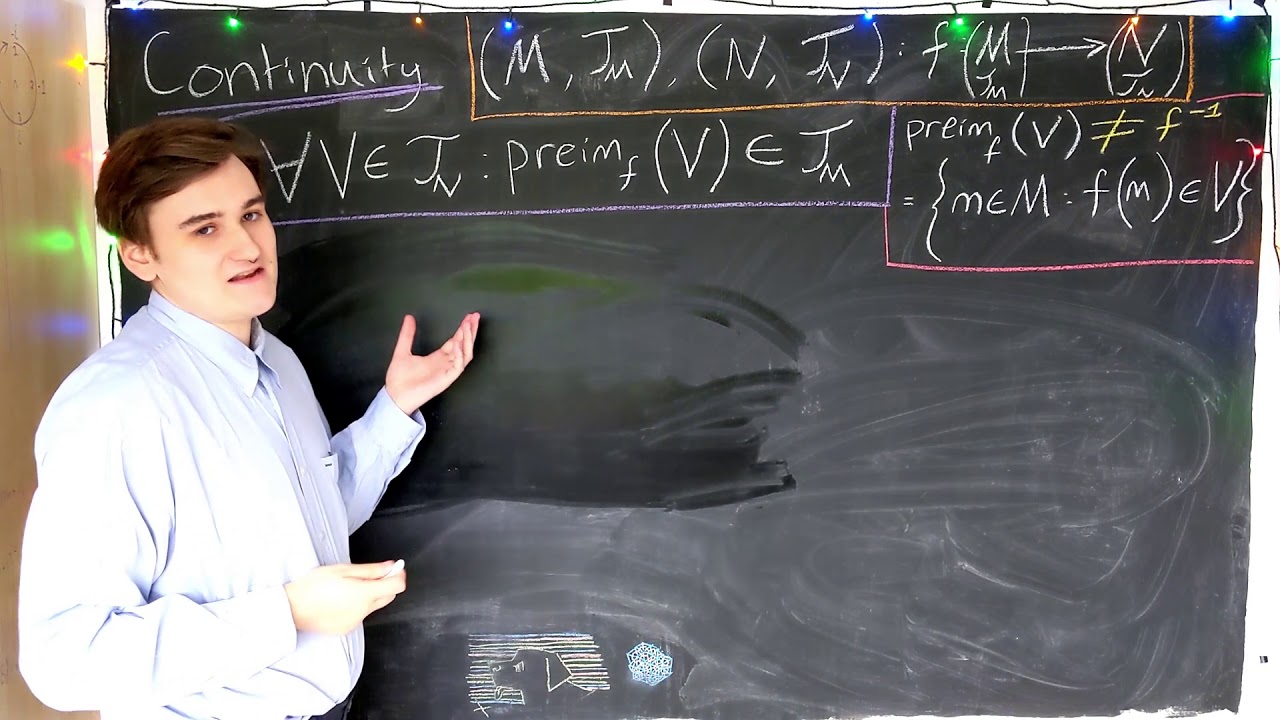 Continuity
(M, 𝒯_M), (N, 𝒯_N) : f (M 𝒯_M) ⟶ (N 𝒯_N)
∀V∈ 𝒯_N : preim_f (V) ∈ 𝒯_M
preim_f (V) ≠ f⁻¹
= {m∈M : f(m) ∈ V}